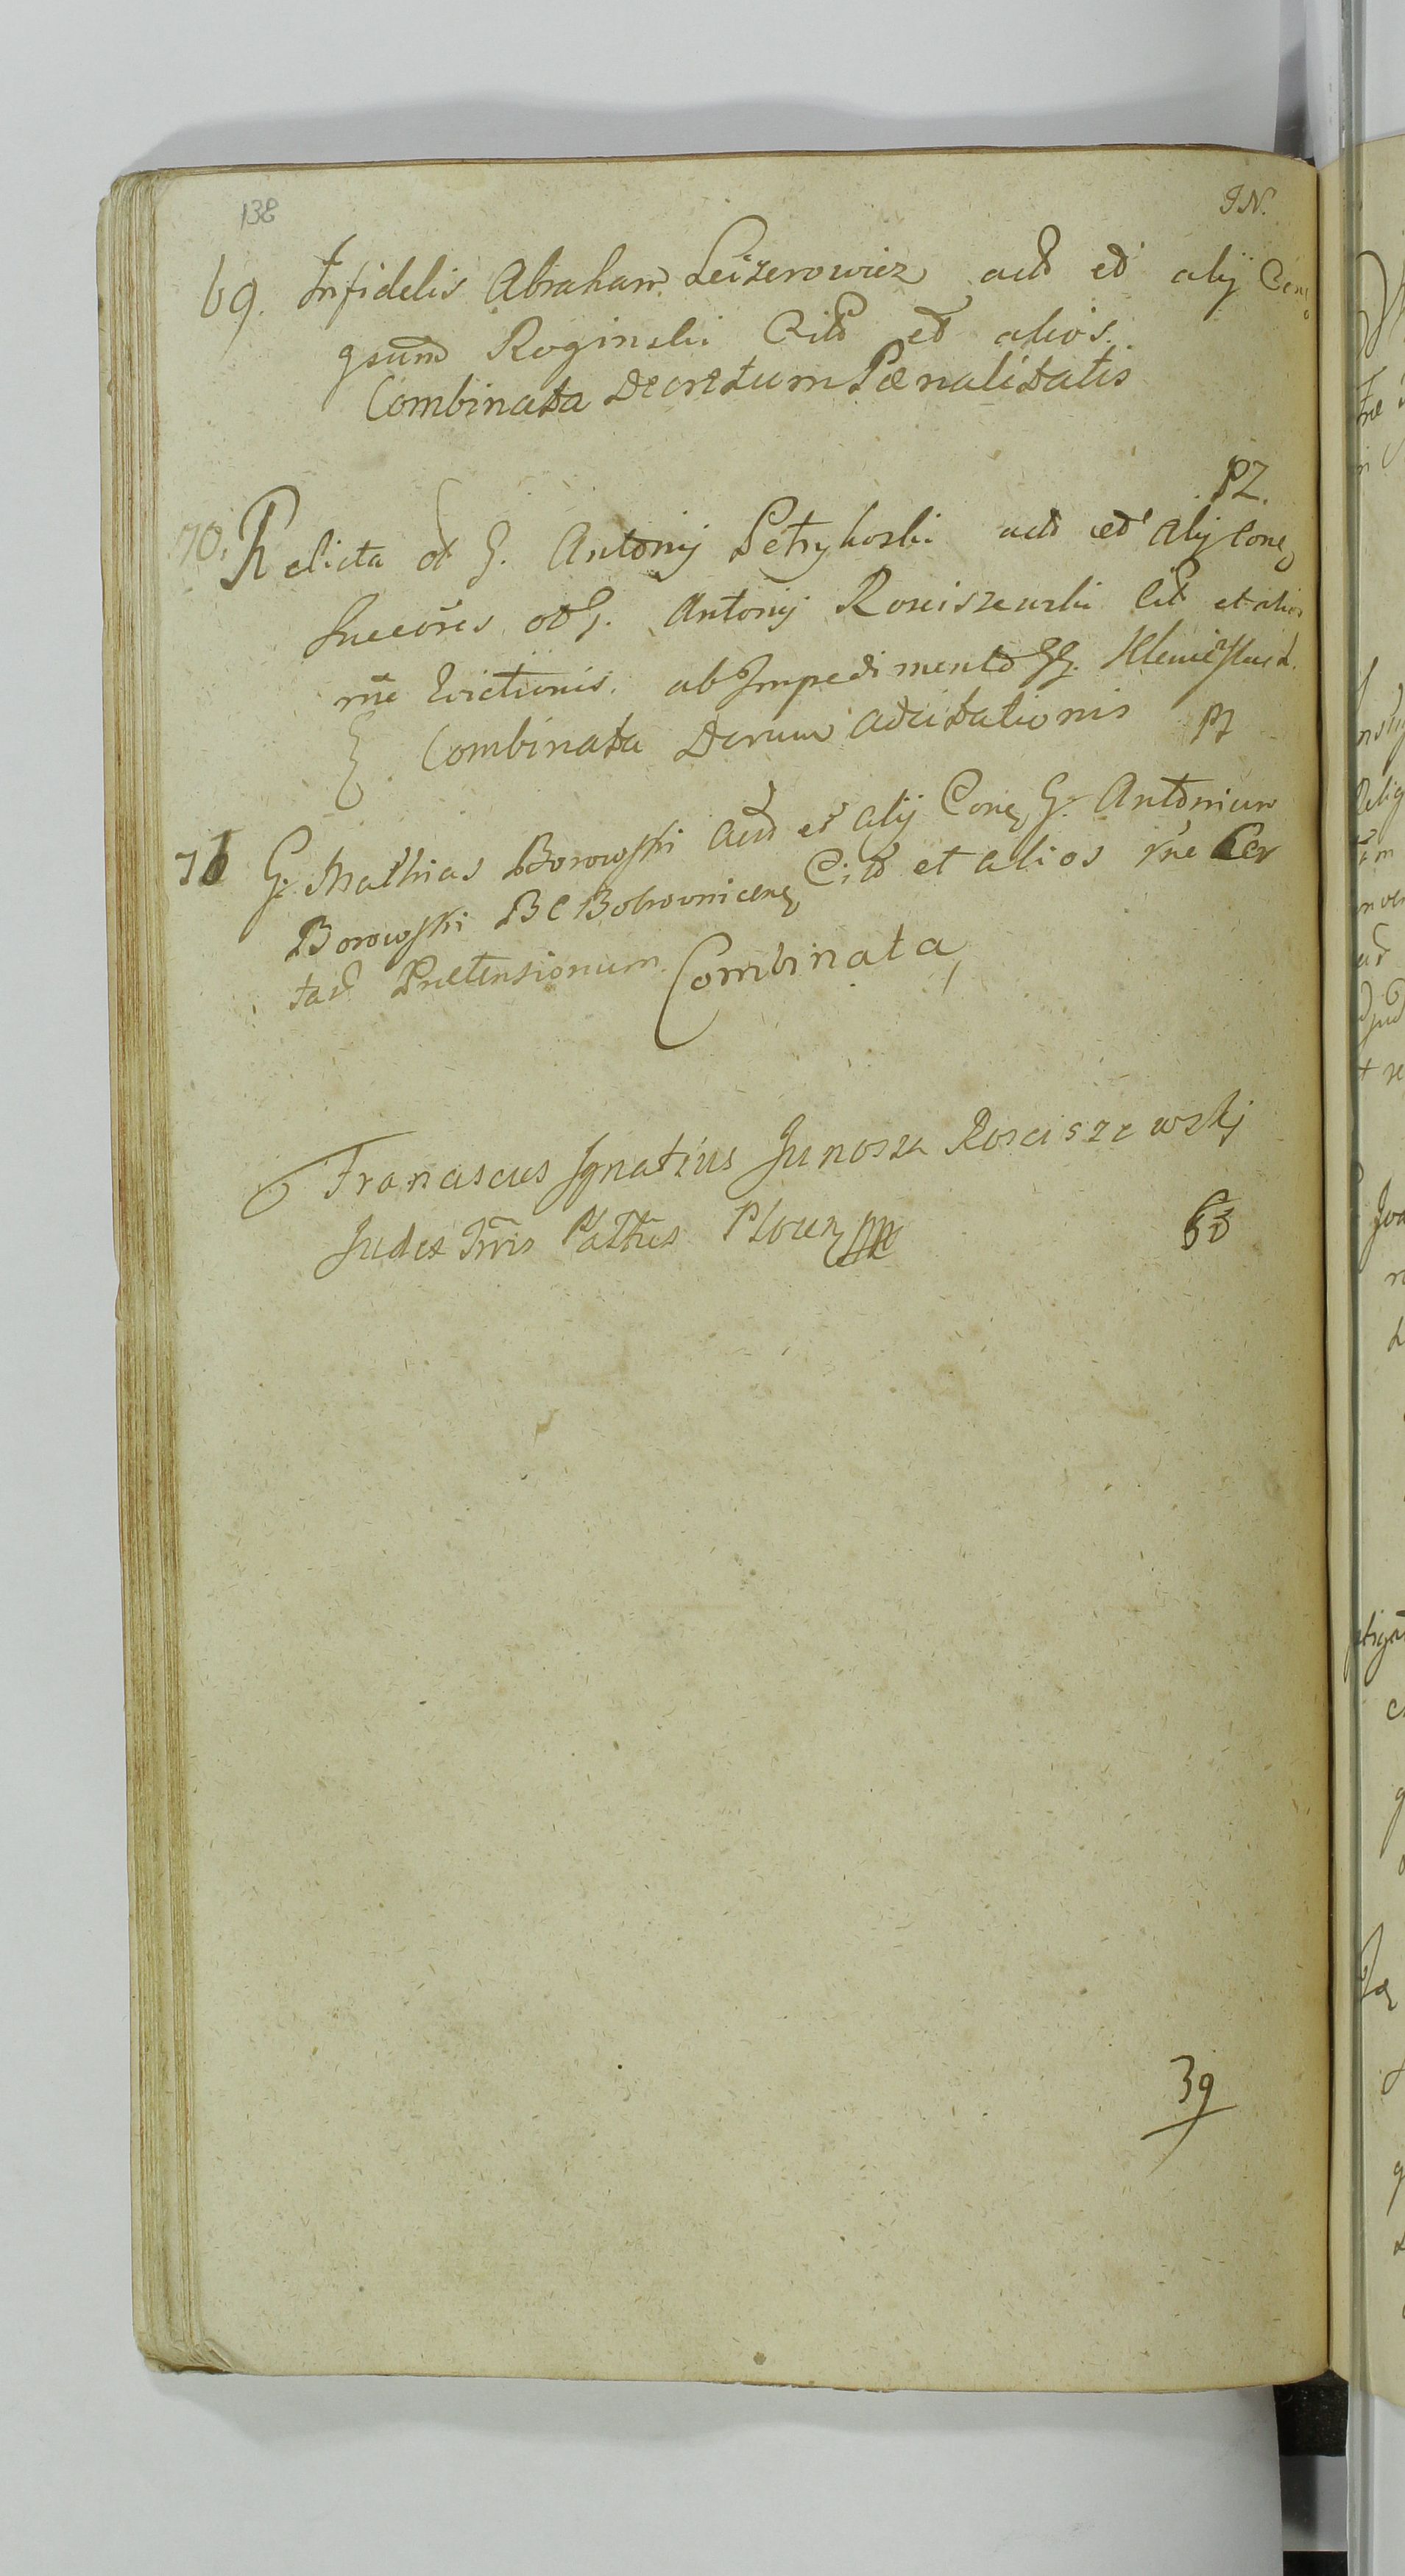 138
JN.
69. Infidelis Abraham Leizerowicz actt et alij Conq
gsum Roginski Citt et alios.
Combinata Decretum Pœnalitatis
PZ.
70. Relicta ol G. Antonij Petrykoski actt et alij Conq
Succōres ol G. Antonij Rosciszewski Citt et alios
rne Evictionis. ab Impedimento GG.
Combinata Darum adcitationis PZ
71 G. Mathias Borowski Actt et alij Conq G. Antonium
Borowski BC Bobrovnicenq Citt et alios rne Cer
tar Prætensionum. Combinata
Franciscus Ignatius Junosza Rosciszewskj
Judex Trris Płattus Plocen mp
39